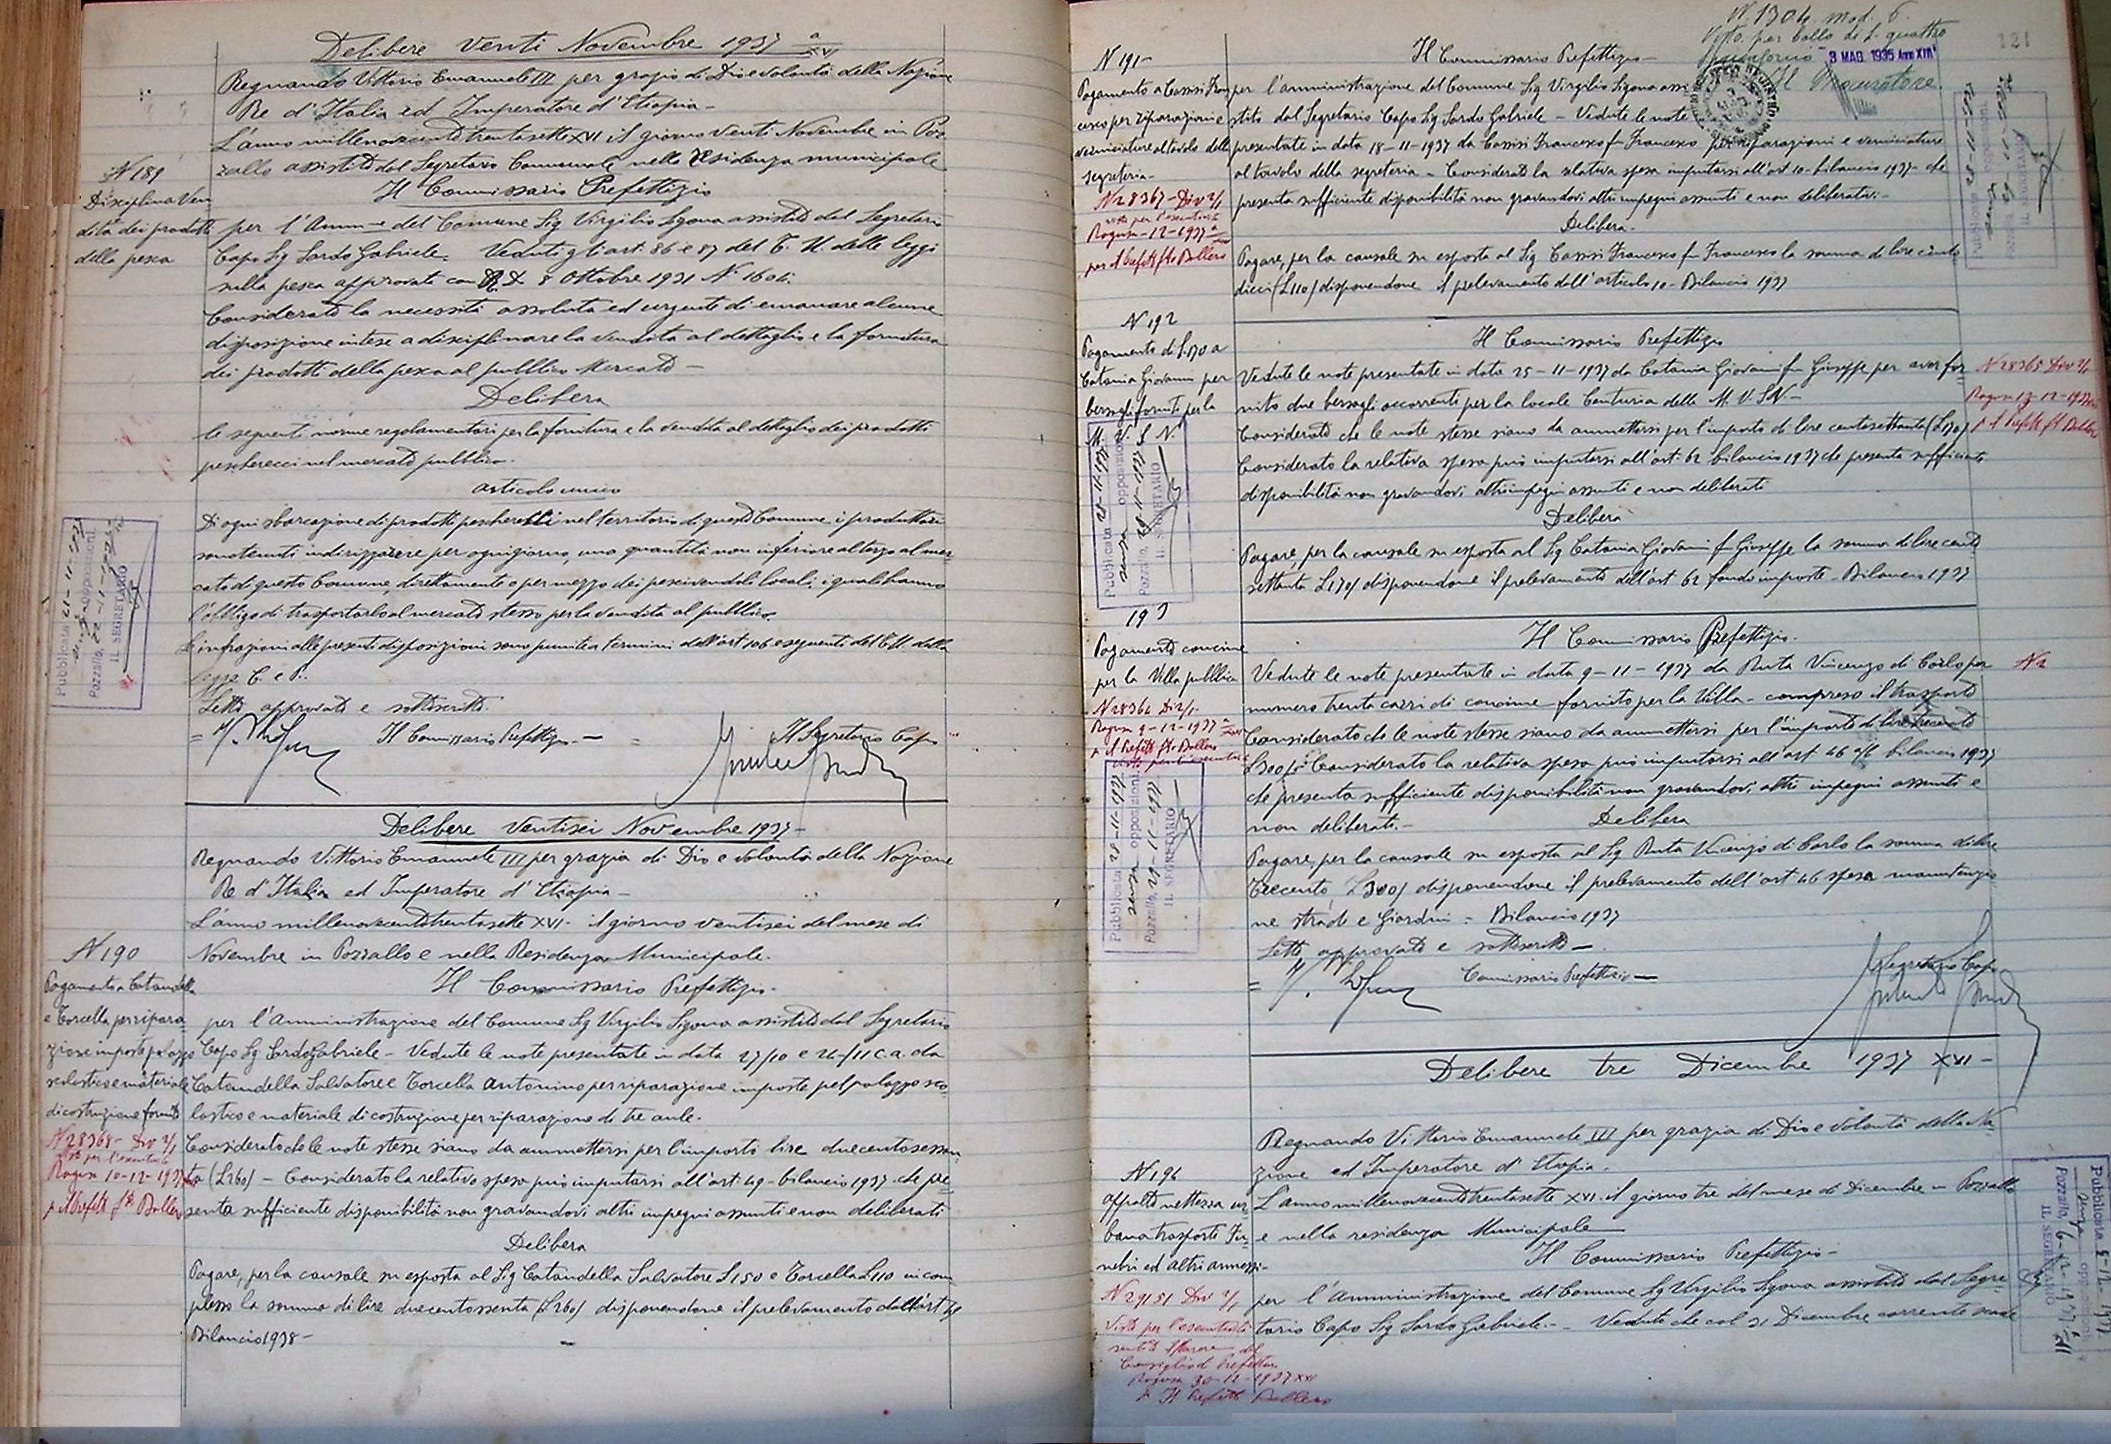 Delibere Venti Novembre 1937 XVI
Regnando Vittorio Emanuele III per grazia di Dio e volontà della Nazione
Re d'Italia ed Imperatore d'Etiopia -
L'anno millenovecentotrentasette XVI il giorno Venti Novembre in Poz
zallo assistito dal Segretario Comunale nella Residenza municipale
Il Commissario Prefettizio
N 189
Disciplina Ven
dita dei prodotti
della pesca
per l'Amm-e del Comune Sig Virgilio Sigona assistito dal Segretario
Capo Sig Sardo Gabriele. Veduti gli art. 86 e 87 del T. U. delle leggi
sulla pesca approvate con R. D. 8 Ottobre 1931 N° 1604.
Considerato la necessità assoluta ed urgente di emanare alcune
disposizione intese a disciplinare la vendita al dettaglio e la fornitura
dei prodotti della pesca al pubblico Mercato -
Delibera
le seguenti norme regolamentari per la fornitura e la vendita al dettaglio dei prodotti
pescherecci nel mercato pubblico.
articolo unico
Di ogni sbarcazione di prodotti pescherecci nel territorio di questo Comune i produttori
sono tenuti indirizzare per ogni giorno, una quantità non inferiore al terzo al mer
cato di questo Comune, direttamente o per mezzo dei pescivendoli locali, i quali hanno
l'obbligo di trasportarlo al mercato stesso per la vendita al pubblico.
Le infrazioni alle presenti disposizioni sono punite a termini dell'art 106 e seguenti del T.U. della
legge C. e P.
Letto approvato e sottoscritto
Il Commissario Prefettizio -
Il Segretario Capo
Pubblicata 21-11-1937
senza opposizioni
Pozzallo, 22-11-1937
IL SEGRETARIO
Delibere Ventisei Novembre 1937-
Regnando Vittorio Emanuele III per grazia di Dio e volontà della Nazione
Re d'Italia ed Imperatore d'Etiopia -
L'anno millenovecentotrentasette XVI - il giorno ventisei del mese di
Novembre in Pozzallo e nella Residenza Municipale.
Il Commissario Prefettizio.
N 190
Pagamento a Catandella
e Torcella per ripara
zione imposte palazzo
scolastico e materiale
di costruzione fornito
N 28368 - Div 2/1
Visto per l'esecutività
Ragusa 10-12-1937
p il Prefetto fto Ballero
per l'Amministrazione del Comune Sig Virgilio Sigona assistito dal Segretario
Capo Sig Sardo Gabriele - Vedute le note presentate in data 27/10 e 24/11 c.a. da
Catandella Salvatore e Torcella Antonino per riparazione imposte pel palazzo sco
lastico e materiale di costruzione per riparazione di tre aule.
Considerato che le note stesse siano da ammettersi per l'importo lire duecentosessan
ta (L260) - Considerato la relativa spesa può imputarsi all'art 49 - bilancio 1937 che pre
senta sufficiente disponibilità non gravandovi altri impegni assunti e non deliberati
Delibera
Pagare, per la causale su esposta al Sig Catandella Salvatore L150 e Torcella L110 in com
plesso la somma di lire duecentossenta (L260) disponendone il prelevamento dall'art 49
Bilancio 1938 -
N. 1304 mod. 6.
Visto per bollo di L. quattro
3 MAG. 1935 Anno XIII
Il Procuratore
121
N 191
Pagamento a Cassisi Fran
cesco per riparazioni e
verniciature al tavolo della
segreteria -
N 28367 - Div 2/1
visto per l'esecutività
Ragusa -12-1937
per il Prefetto fto Ballero
Il Commissario Prefettizio -
per l'amministrazione del Comune Sig Virgilio Sigona assi
stito dal Segretario Capo Sig Sardo Gabriele - Vedute le note
presentate in data 18-11-1937 da Cassisi Francesco fu Francesco per riparazioni e verniciature
al tavolo della segreteria - Considerato la relativa spesa imputarsi all'art 10 - bilancio 1937 - che
presenta sufficiente disponibilità non gravandovi altri impegni assunti e non deliberati -
Delibera -
Pagare, per la causale su esposta al Sig Cassisi Francesco fu Francesco la somma di lire cento
dieci (L110) disponendone il prelevamento dall'articolo 10 - Bilancio 1937
N 192
Pagamento di L.170 a
Catania Giovanni per
bersagli forniti per la
M. V. S. N.
Pubblicata 28-11-1937
senza opposizioni
Pozzallo, 28-11-1937
IL SEGRETARIO
Il Commissario Prefettizio
Vedute le note presentate in data 25-11-1937 da Catania Giovanni fu Giuseppe per aver for
nito due bersagli occorrenti per la locale Centuria della M. V. S. N -
Considerato che le note stesse siano da ammettersi per l'importo di lire centosettanta (L170)
Considerato la relativa spesa può imputarsi all'art. 62 bilancio 1937 che presenta sufficiente
disponibilità non gravandovi altri impegni assunti e non deliberati
Delibera
Pagare, per la causale su esposta al Sig Catania Giovanni fu Giuseppe la somma di lire cento
settanta L170) disponendone il prelevamento dell'art 62 fondo imposte - Bilancio 1937
N 28365 Div 2/1
p il Prefetto fto Ballero
193
Pagamento concime
per la Villa pubblica
N 28364 Div 2/1
Ragusa 9-12-1937
p il Prefetto fto Ballero
visto per l'esecutività
Pubblicata 28-11-1937
senza opposizioni
Pozzallo, 28-11-1937
IL SEGRETARIO
Il Commissario Prefettizio.
Vedute le note presentate in data 9-11-1937 da Ruta Vincenzo di Carlo per
numero trenta carri di concime fornito per la Villa - compreso il trasporto
Considerato che le note stesse siano da ammettersi per l'importo di lire trecento
L300) - Considerato la relativa spesa può imputarsi all'art 46 bilancio 1937
che presenta sufficiente disponibilità non gravandovi altri impegni assunti e
non deliberati.-
Delibera
N 2
Pagare, per la causale su esposta al Sig Ruta Vincenzo di Carlo la somma di lire
Trecento, L300) disponendone il prelevamento dell'art 46 spesa manutenzio
ne strade e Giardini - Bilancio 1937
Letto approvato e sottoscritto -
Commissario Prefettizio -
Il Segretario Capo
Delibere tre Dicembre 1937 XVI -
Regnando Vittorio Emanuele III per grazia di Dio e volontà della Na
zione ed Imperatore d'Etiopia.
L'anno millenovecentotrentasette XVI. il giorno tre del mese di Dicembre in Pozzallo
e nella residenza Municipale
Il Commissario Prefettizio -
N 194
appalto nettezza ur
bana trasporti Fu
nebri ed altri annessi -
N 29151 Div 2/1
Visto per l'esecutività
sentito il parere del
Consiglio di Prefettura
Ragusa 30-12-1937 XVI
p Il Prefetto Ballero
per l'Amministrazione del Comune Sig Virgilio Sigona assistito dal Segre
tario Capo Sig Sardo Gabriele - Veduto che col 31 Dicembre corrente scade
Pubblicata 5-12-1937
Pozzallo, 6-12-1937
IL SEGRETARIO